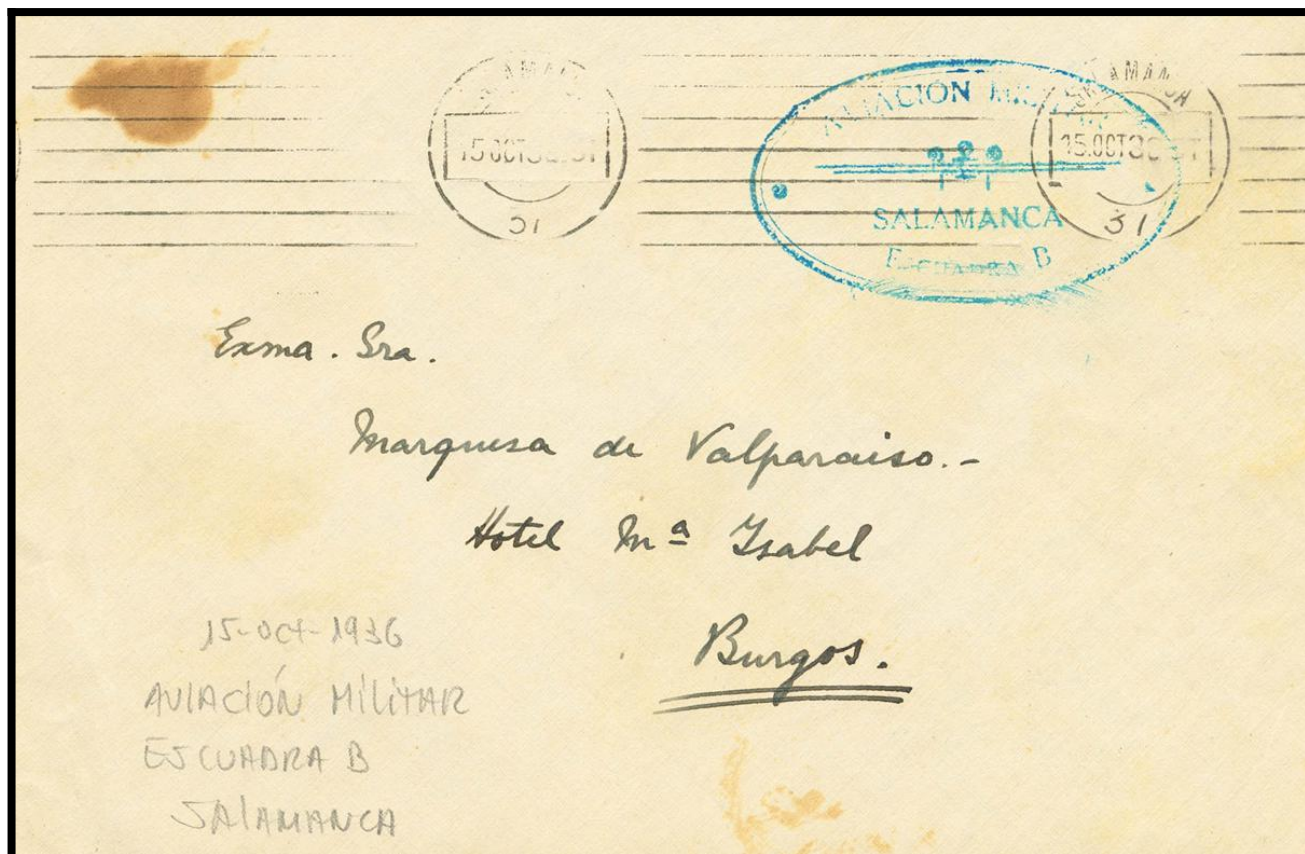 SALAMANCA
15 OCT 36
31
AVIACIÓN MILITAR
SALAMANCA
ESCUADRA B
SALAMANCA
15.OCT36
31
Exma. Sra.
Marquesa de Valparaiso.-
Hotel Mª Isabel
Burgos.
15-OCT-1936
AVIACIÓN MILITAR
ESCUADRA B
SALAMANCA